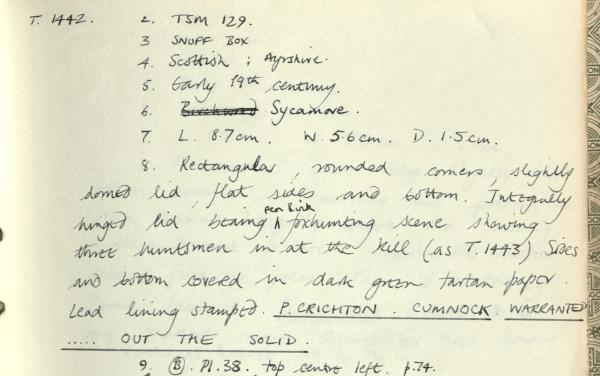 T. 1442. 2. TSM 129.
3 SNUFF BOX
4. Scottish ; Ayrshire.
5. Early 19th century.
6. Birchwood Sycamore.
7. L. 8.7cm. W. 5.6cm. D. 1.5cm.
8. Rectangular, rounded corners, slightly
domed lid, flat sides and bottom. Integrally
hinged lid bearing pen & ink foxhunting scene showing
three huntsmen in at the kill (as T.1443). Sides
and bottom covered in dark green tartan paper.
Lead lining stamped. P. CRICHTON. CUMNOCK. WARRANTED
..... OUT THE SOLID.
9. B. Pl. 38. top centre left. p.74.